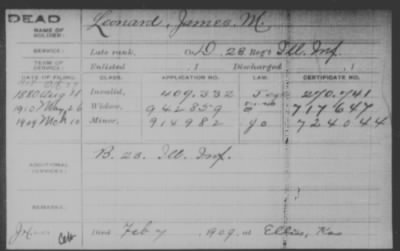 DEAD
NAME OF SOLDIER: Leonard, James, M.
SERVICE: Late rank, Co. D, 23 Reg't Ill. Inf.
TERM OF SERVICE: Enlisted , 1 Discharged , 1
DATE OF FILING. CLASS. APPLICATION NO. LAW. CERTIFICATE NO.
1880 Aug Invalid, 409.332 270.741
1910 May 26 Widow, 942859 717647
1909 Mch 10 Minor, 914982 go 724044
ADDITIONAL SERVICES: B. 23. Ill. Inf.
REMARKS:
Died Feb 7, 1909, at Ellis, Kas